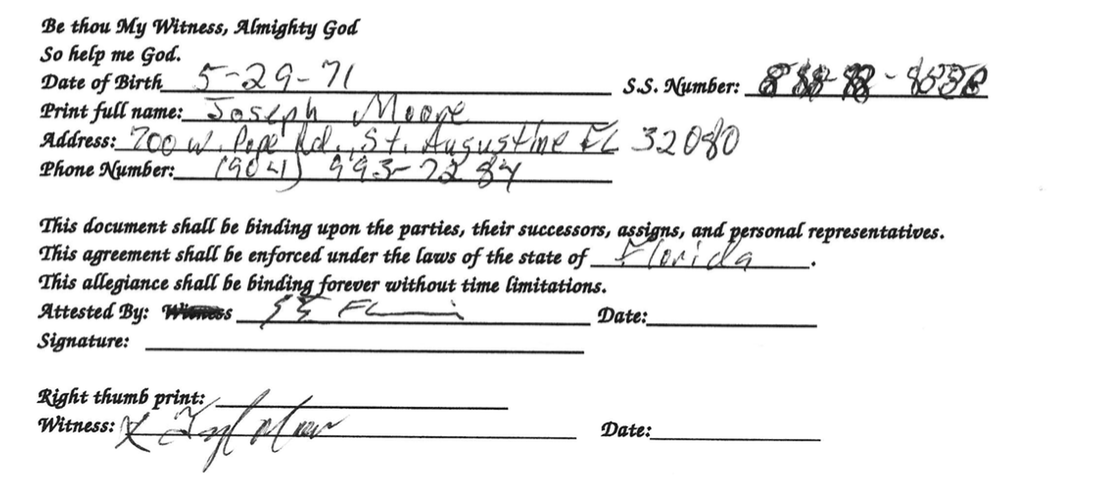 Be thou My Witness, Almighty God
So help me God.
Date of Birth 5-29-71 S.S. Number:
Print full name: Joseph Moore
Address: 700 W. Pope Rd., St. Augustine FL 32080
Phone Number: (904) 993-7284
This document shall be binding upon the parties, their successors, assigns, and personal representatives.
This agreement shall be enforced under the laws of the state of Florida.
This allegiance shall be binding forever without time limitations.
Attested By: Date:
Signature:
Right thumb print:
Witness: Date: